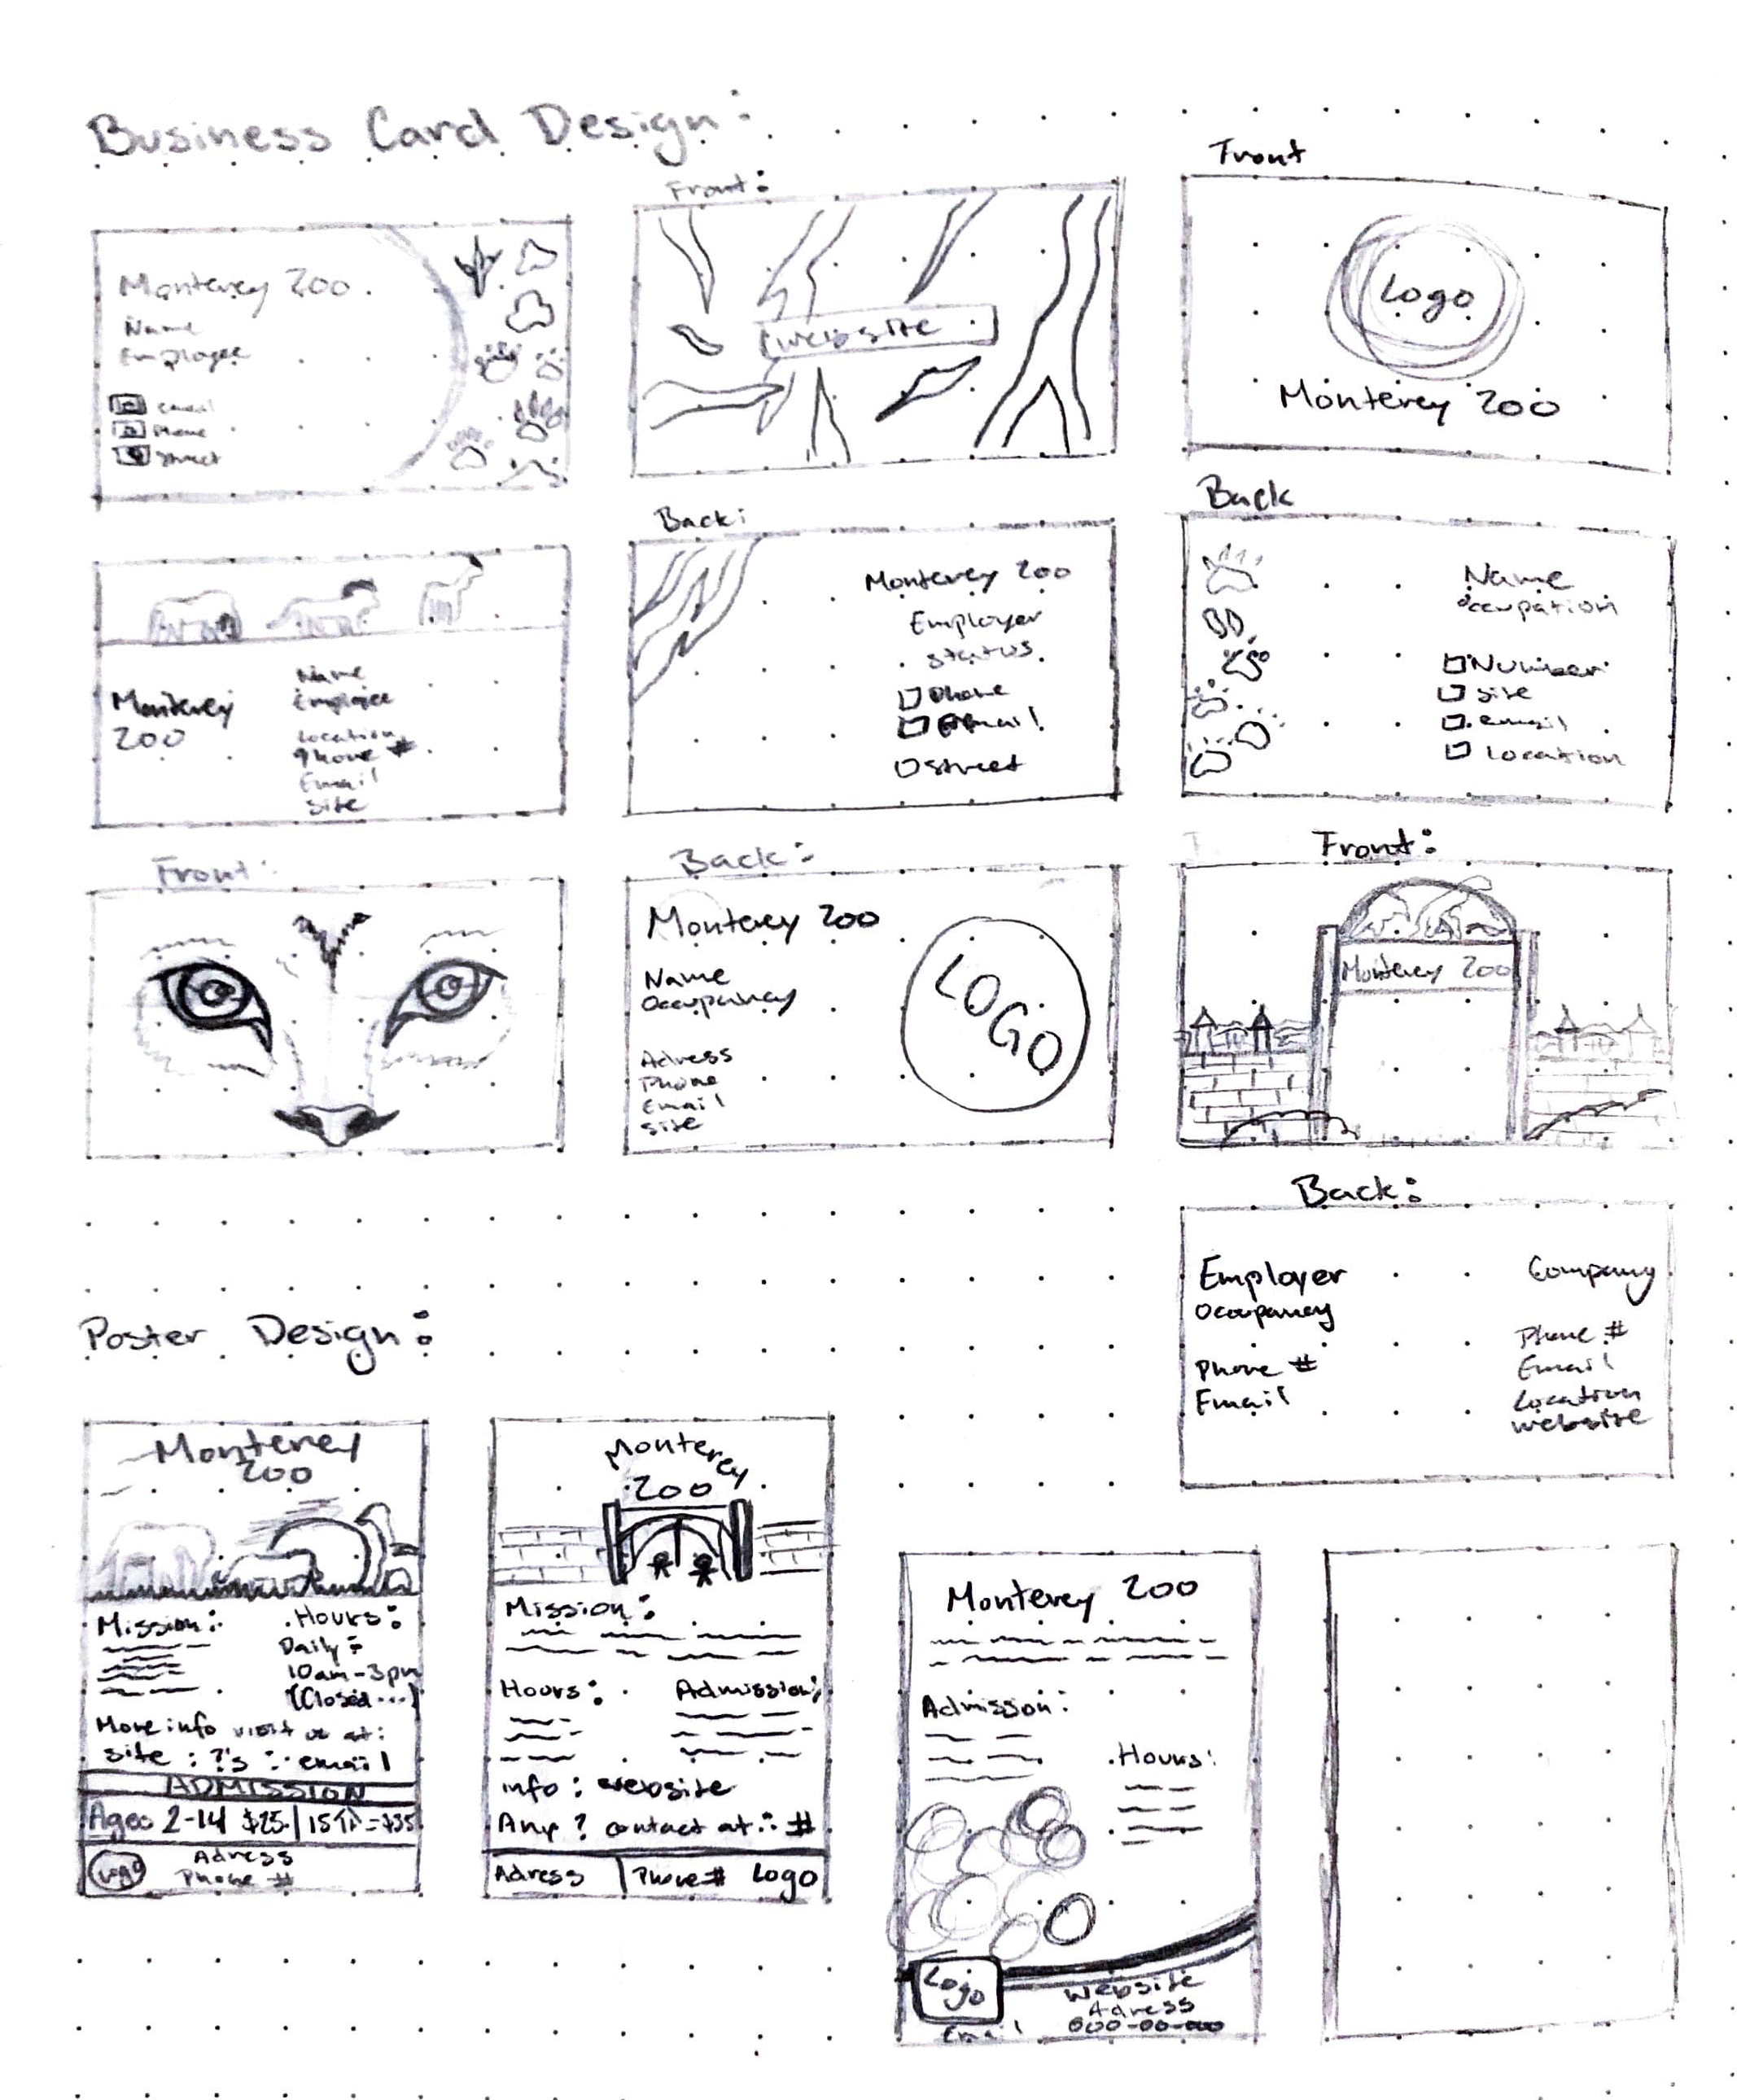 Business Card Design:
Monterey Zoo
Name
Employee
Email
Phone
Street
Front:
Website
Front
Logo
Monterey Zoo
Monterey
Zoo
Name
Employee
Location
Phone #
Email
Site
Back:
Monterey Zoo
Employer
Status
Phone
Email
Street
Back
Name
Occupation
Number
Site
Email
Location
Front:
Back:
Monterey Zoo
Name
Occupancy
Adress
Phone
Email
Site
LOGO
Front:
Monterey Zoo
Back:
Employer
Occupancy
Phone #
Email
Company
Phone #
Email
Location
Website
Poster Design:
Monterey
Zoo
Mission:
Hours:
Daily:
10am-3pm
(Closed...)
More info visit us at:
Site : ?'s : email
ADMISSION
Ages 2-14 $25 | 15↑ = $35
Logo
Adress
Phone #
Monterey
Zoo
Mission:
Hours:
Admission:
Info: website
Any ? contact at: #
Adress | Phone # Logo
Monterey Zoo
Admission:
Hours:
Logo
Email
Website
Adress
000-00-000